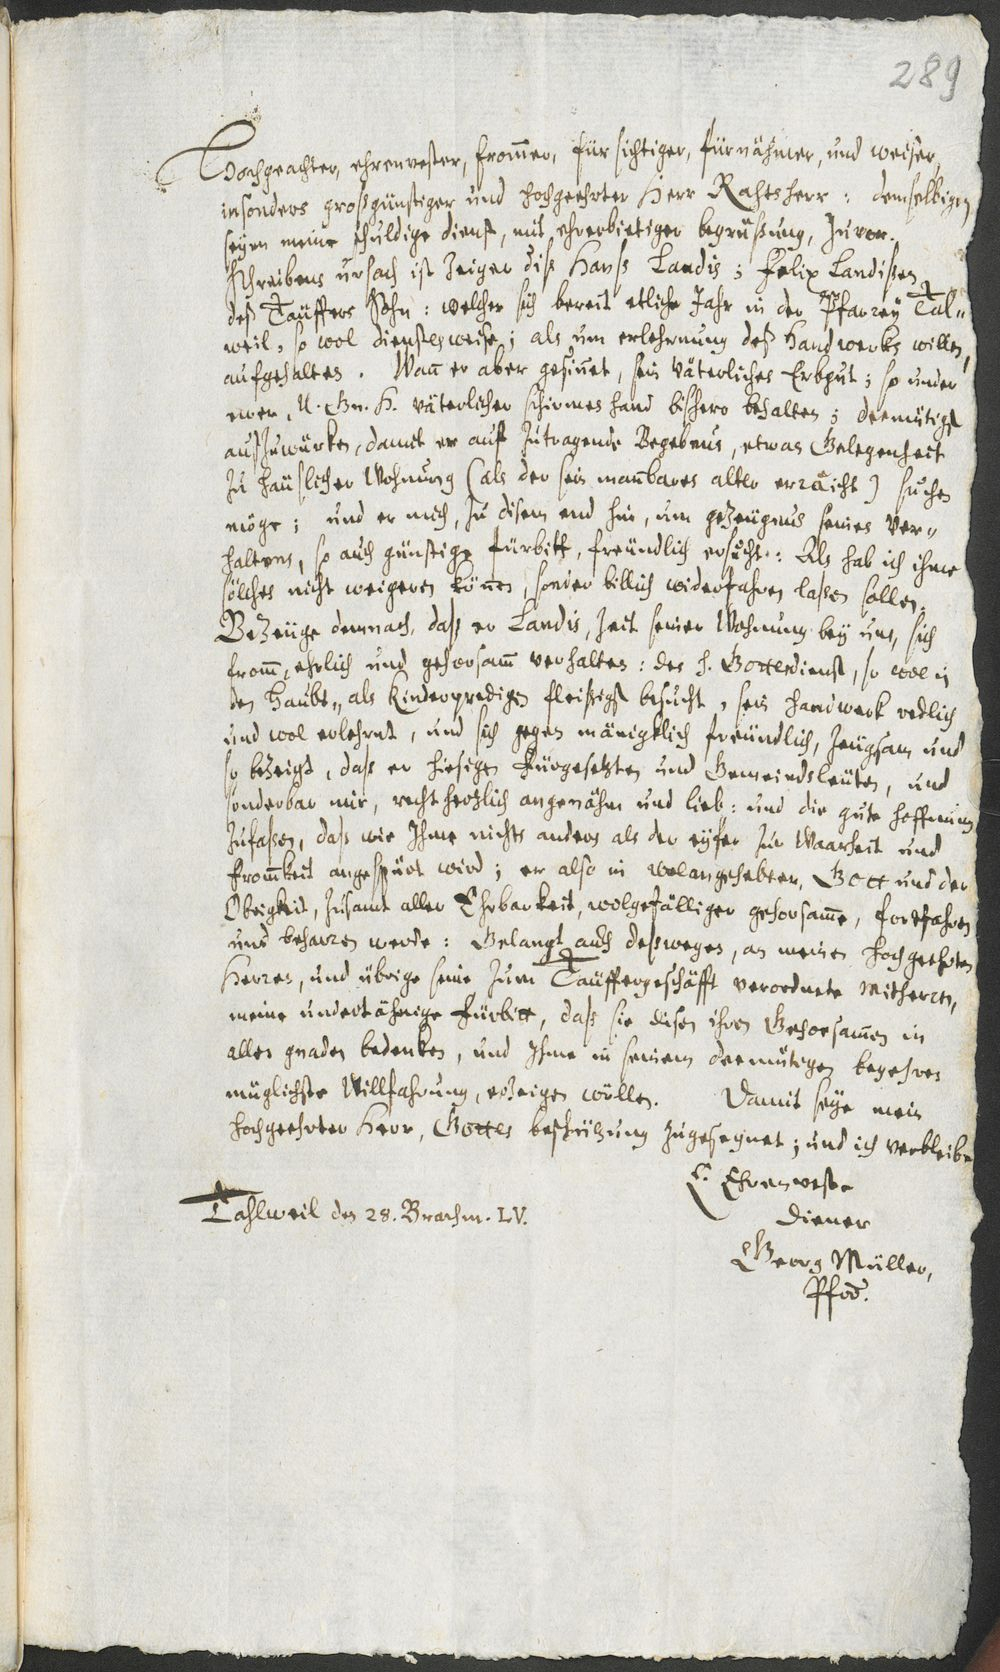 289
Hochgeachter, ehrenvester, from̄er, fürsichtiger, fürnähmer, und weiser,
insonders großgünstiger und hochgeehrter Herr Rahtsherr: demselbigen
seyen meine schuldige dienst, mit ehrerbietiger begrüßung, zuvor.
Schreibens ursach ist zeiger diß Hanß Landis; Felix Landißen
deß Täuffers Sohn: welcher sich bereit etliche Jahr in der Pfarrey Tal„
weil, so wol diensteßweise; als um erlehrnung deß Handwerks willen,
aufgehalten. Wan̄ er aber gesin̄et, sein väterliches Erbgut; so under
euer, U. Gn. H. väterlicher schirmes hand bißhero behalten; demütigst
außzuwürken, damit er auf zutragende Begebnus, etwas Gelegenheit
zu häußlicher Wohnung (als der sein man̄bares alter erraicht) suchen
möge; und er mich, zu disem end hin, um gezeugnus seines Ver„
haltens, so auch günstige fürbitt, freündlich ersucht: Als hab ich ihme
sölches nicht weigeren kön̄en, sonder billich widerfahren laßen sollen.
Bezeüge demnach, daß er Landis, zeit seiner Wohnung bey uns, sich
from̄, ehrlich und gehorsam̄ verhalten: den h. Gottesdienst, so wol in
den Haubt„ als Kinderpredigen fleißigst besucht, sein handwerk redlich
und wol erlehrnt, und sich gegen mänigklich freündlich, zeugsam und
so bezeigt, daß er hiesigen Fürgesetzten und Gemeindsleüten, und
sonderbar mir, recht hertzlich angenähm und lieb: und die gute hoffnung
zufaßen, daß wie Ihme nichts anders als der eyfer zur Waarheit und
from̄keit angespürt wird; er also in wolangehebter, Gott und der
Obrigkeit, zusamt aller Ehrbarkeit, wolgefälliger gehorsam̄e, fortfahren
und beharren werde: Gelangt auch deßwegen, an meinen hochgeehrten
Herren, und übrige seine zum Täuffergeschäfft verordnete Mitherren,
meine undertähnige Fürbitt, daß sie disen ihren Gehorsam̄en in
allen gnaden bedenken, und Ihme in seinem demütigen begehren
müglichste Willfahrung, erzeigen wöllen. Damit seye mein
hochgeehrter Herr, Gottes beschützung zugesegnet; und ich verbleibe
E. Ehrenveste
Tahlweil den 28. Brachm. LV.
diener
Georg Müller,
Pfr.